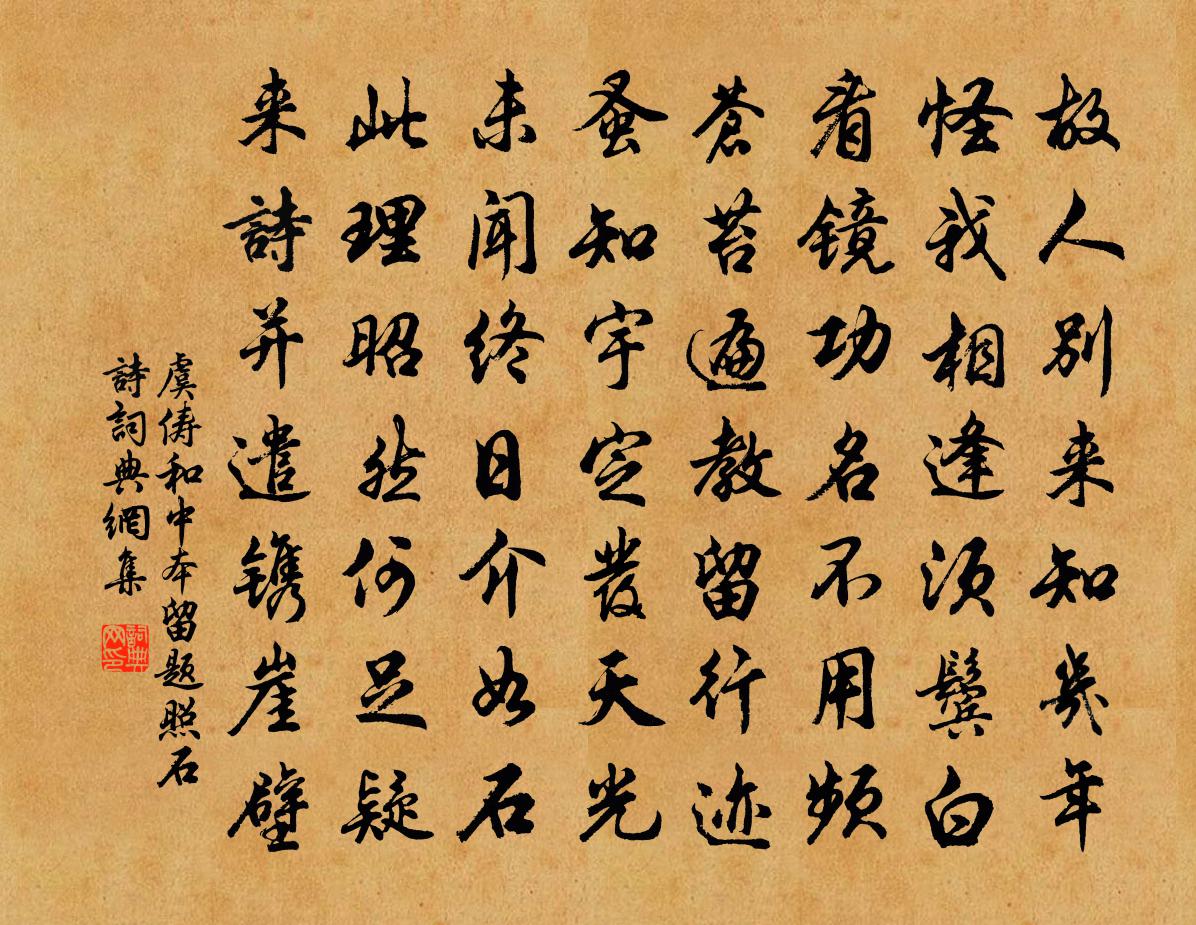 故人别来知幾年
怪我相逢须鬓白
看镜功名不用频
蒼苔遍教留行迹
蚤知宇定發天光
未闻终日介如石
此理昭然何足疑
来詩并遣镌崖壁
虞俦和中本留题照石
詩詞典網集
詞典网印